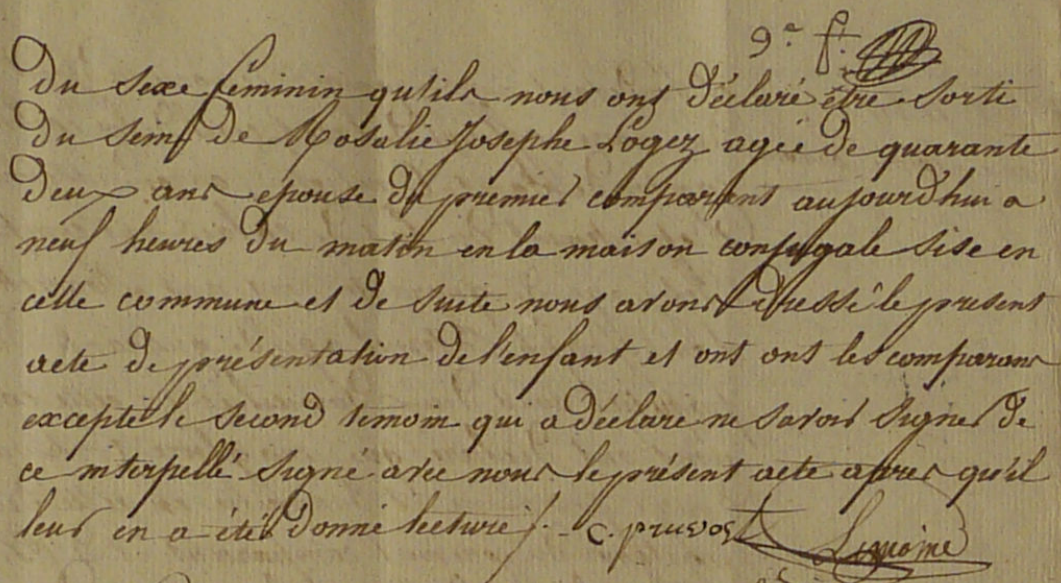 9e. f.
Du sexe féminin qu'ils nous ont déclaré être sorti
Du sein de Rosalie Josephe Logez agée de quarante
Deux ans epouse du premier comparant aujourd'hui a
neuf heures du matin en la maison conjugale sise en
cette commune et de suite nous avons dressé le present
acte de présentation de l'enfant et ont ont les comparans
excepté le second temoin qui a déclaré ne savoir signer de
ce interpellé signé avec nous le présent acte après qu'il
leur en a été donné lecture /. C. pruvost Lemoine